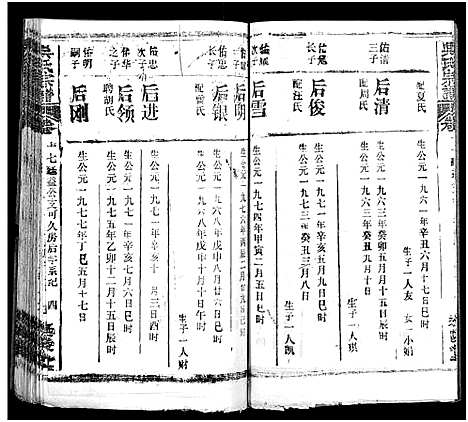 吴氏宗譜
配夏氏
生公元一九六一年辛丑六月十七日巳时
生子一人友 女一小娟
佑清
三子
后清
配周氏
生公元一九六三年癸卯六月十五日辰时
生子一人琪
佑冕
长子
后俊
配汪氏
生公元一九七一年辛亥五月九日巳时
生公元一九七三年癸丑三月八日
生子一人凯
后雪
生公元一九七四年甲寅二月五日巳时
佑忠
长子
后明
生公元一九七六年丙辰
后银
配雷氏
生公元一九六八年戊申八月廿六日巳时
生公元一九六八年戊申十月十日午时
生子一人财
佑忠
次子
后进
生公元一九七一年辛亥十一月三日酉时
佑华
之子
后领
聘胡氏
生公元一九七一年辛亥七月六日巳时
生公元一九七五年乙卯十二月十五日辰时
佑明
嗣子
后刚
生公元一九七七年丁巳五月十七日
吴氏宗譜
益公支可久房后字系纪 四